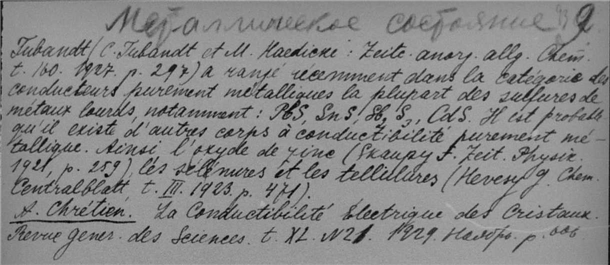 Металлическое состояние 9
Tubandt (C. Tubandt et M. Haedicke: Zeits. anorg. allg. Chem.
t. 160. 1927. p. 297) a rangé récemment dans la catégorie des
conducteurs purement métalliques la plupart des sulfures de
métaux lourds, notamment: PbS, SnS, , CdS. Il est probable
qu'il existe d'autres corps à conductibilité purement mé-
tallique. Ainsi l'oxyde de zinc (Skaupy F. Zeit. Physik.
1921, p. 259), les sélénures et les tellulures (Hevesy G. Chem.
Centralblatt, t. III. 1923, p. 471).
A. Chrétien. La Conductibilité Electrique des Cristaux.
Revue Géner. des Sciences. t. XL. N21. 1929. Ноябрь. p.